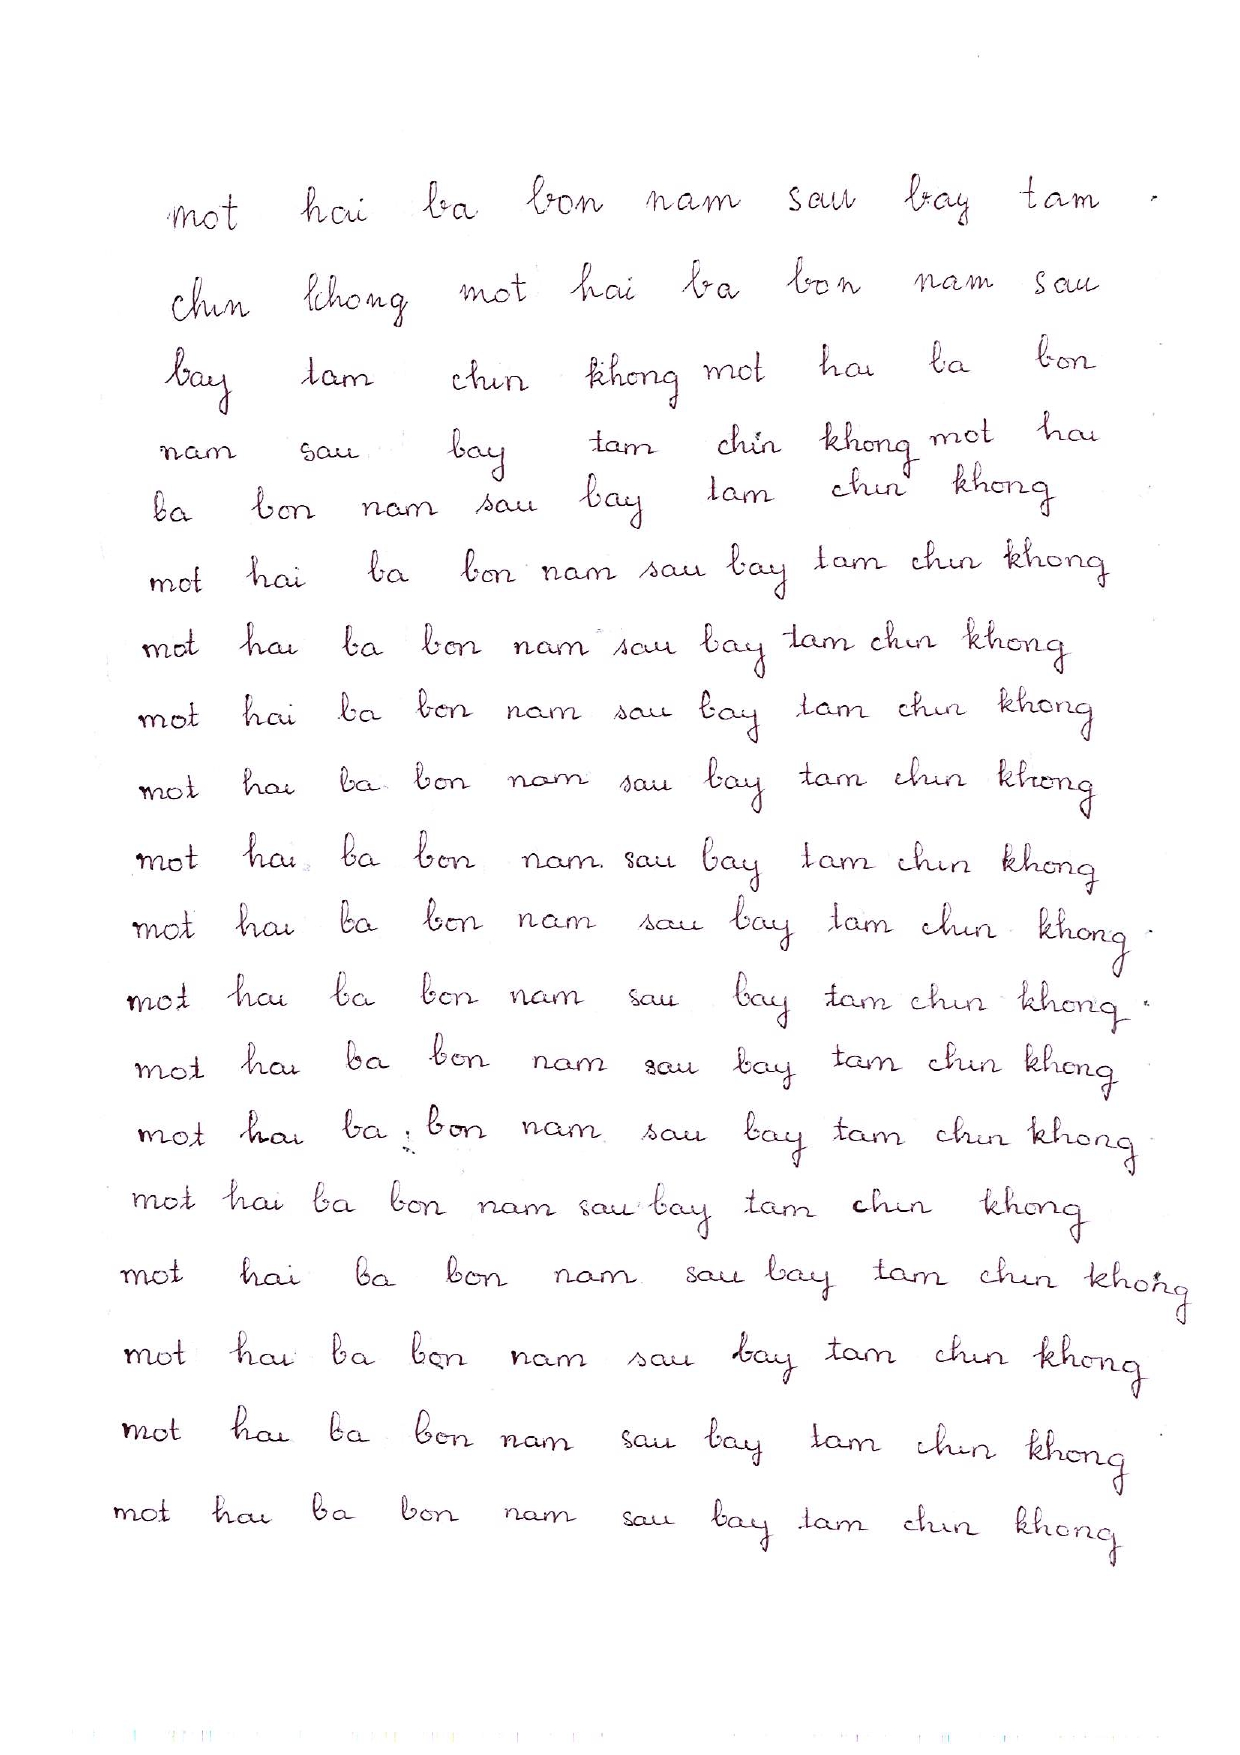 mot hai ba bon nam sau bay tam
chin khong mot hai ba bon nam sau
bay tam chin khong mot hai ba bon
nam sau bay tam chin khong mot hai
ba bon nam sau bay tam chin khong
mot hai ba bon nam sau bay tam chin khong
mot hai ba bon nam sau bay tam chin khong
mot hai ba bon nam sau bay tam chin khong
mot hai ba bon nam sau bay tam chin khong
mot hai ba bon nam sau bay tam chin khong
mot hai ba bon nam sau bay tam chin khong
mot hai ba bon nam sau bay tam chin khong
mot hai ba bon nam sau bay tam chin khong
mot hai ba bon nam sau bay tam chin khong
mot hai ba bon nam sau bay tam chin khong
mot hai ba bon nam sau bay tam chin khong
mot hai ba bon nam sau bay tam chin khong
mot hai ba bon nam sau bay tam chin khong
mot hai ba bon nam sau bay tam chin khong